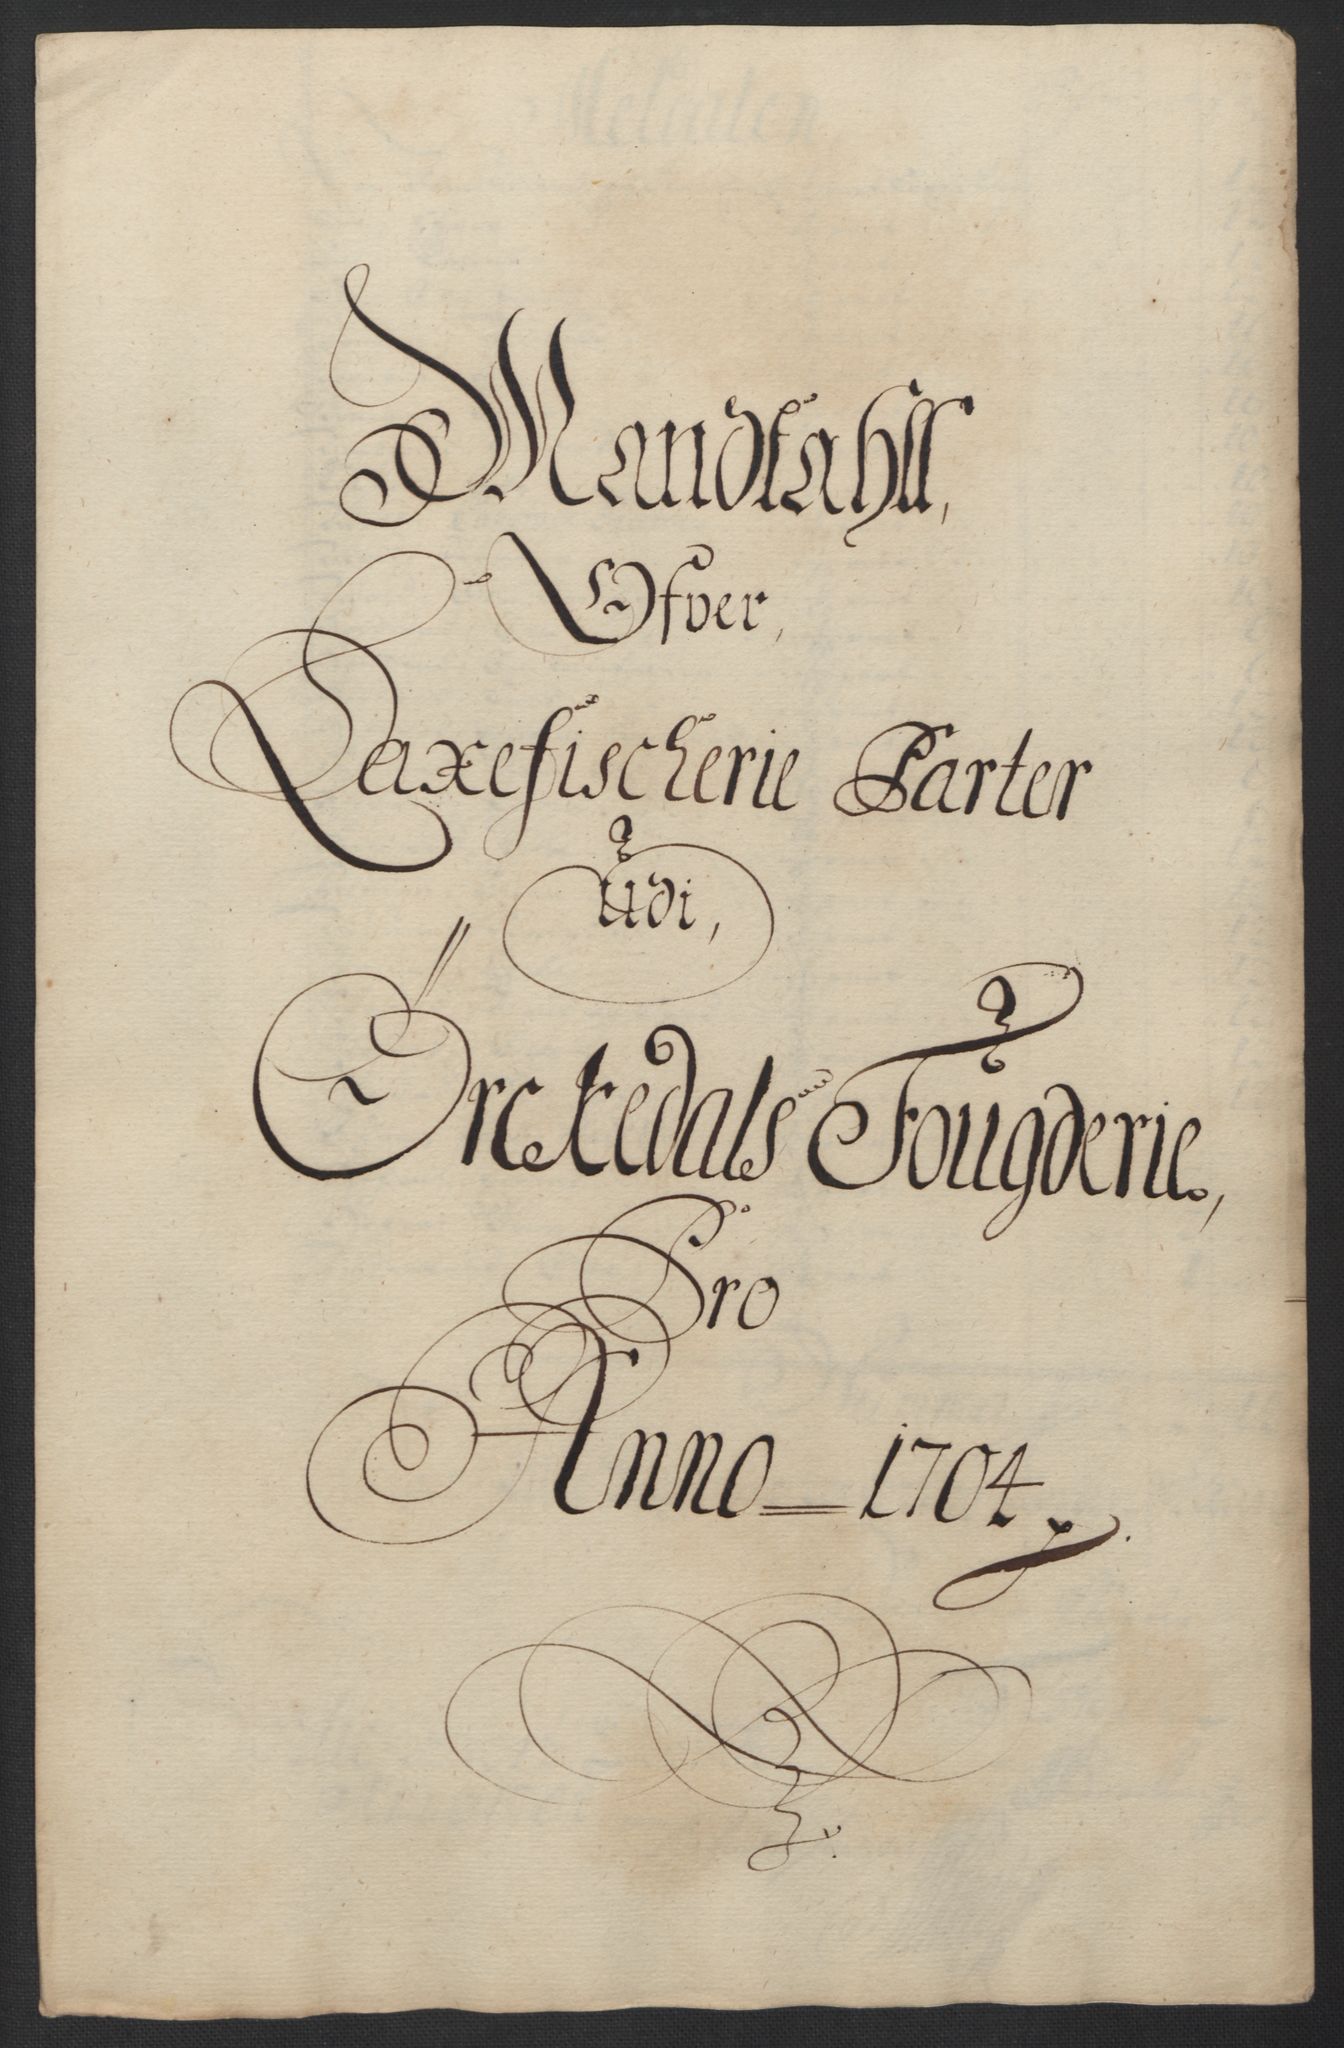 Mandtahll,
Ofver,
Laxefischerie Parter
Udi,
Orckedals Fougderie,
Pro
Anno = 1704